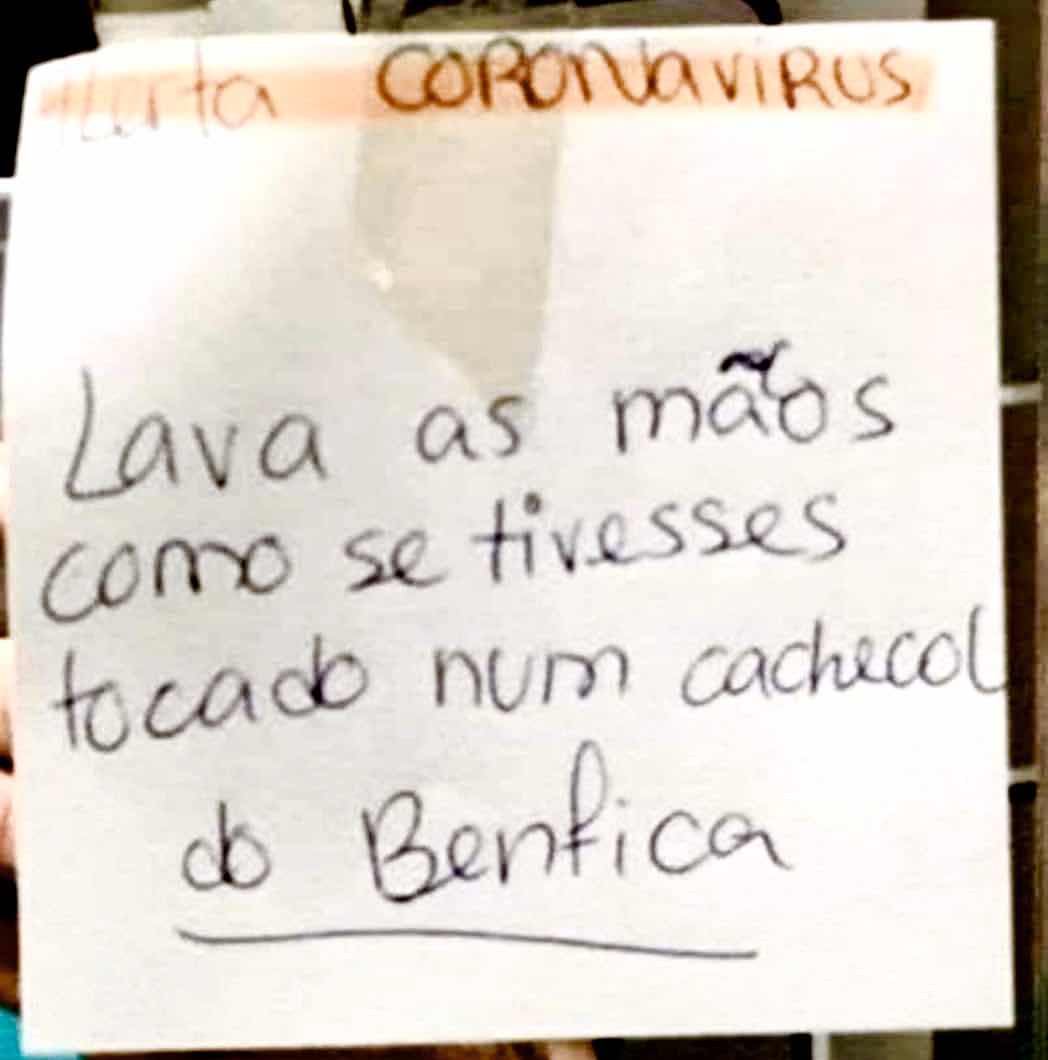 Alerta CORONAVIRUS
Lava as mãos
como se tivesses
tocado num cachecol
do Benfica